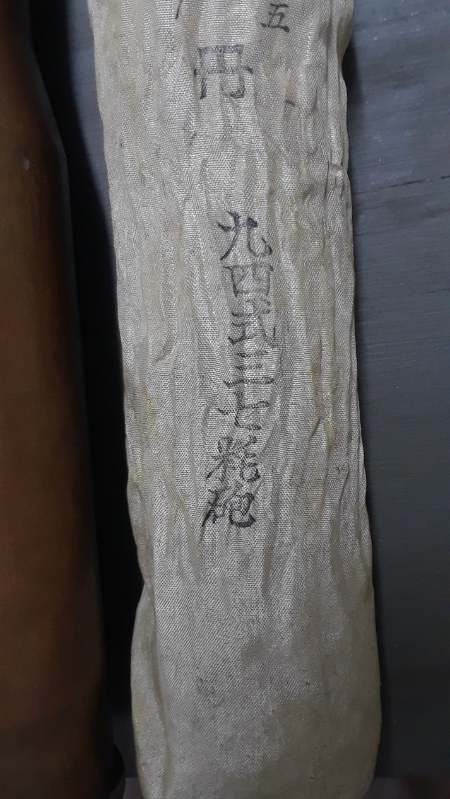 五
九四式三七粍砲